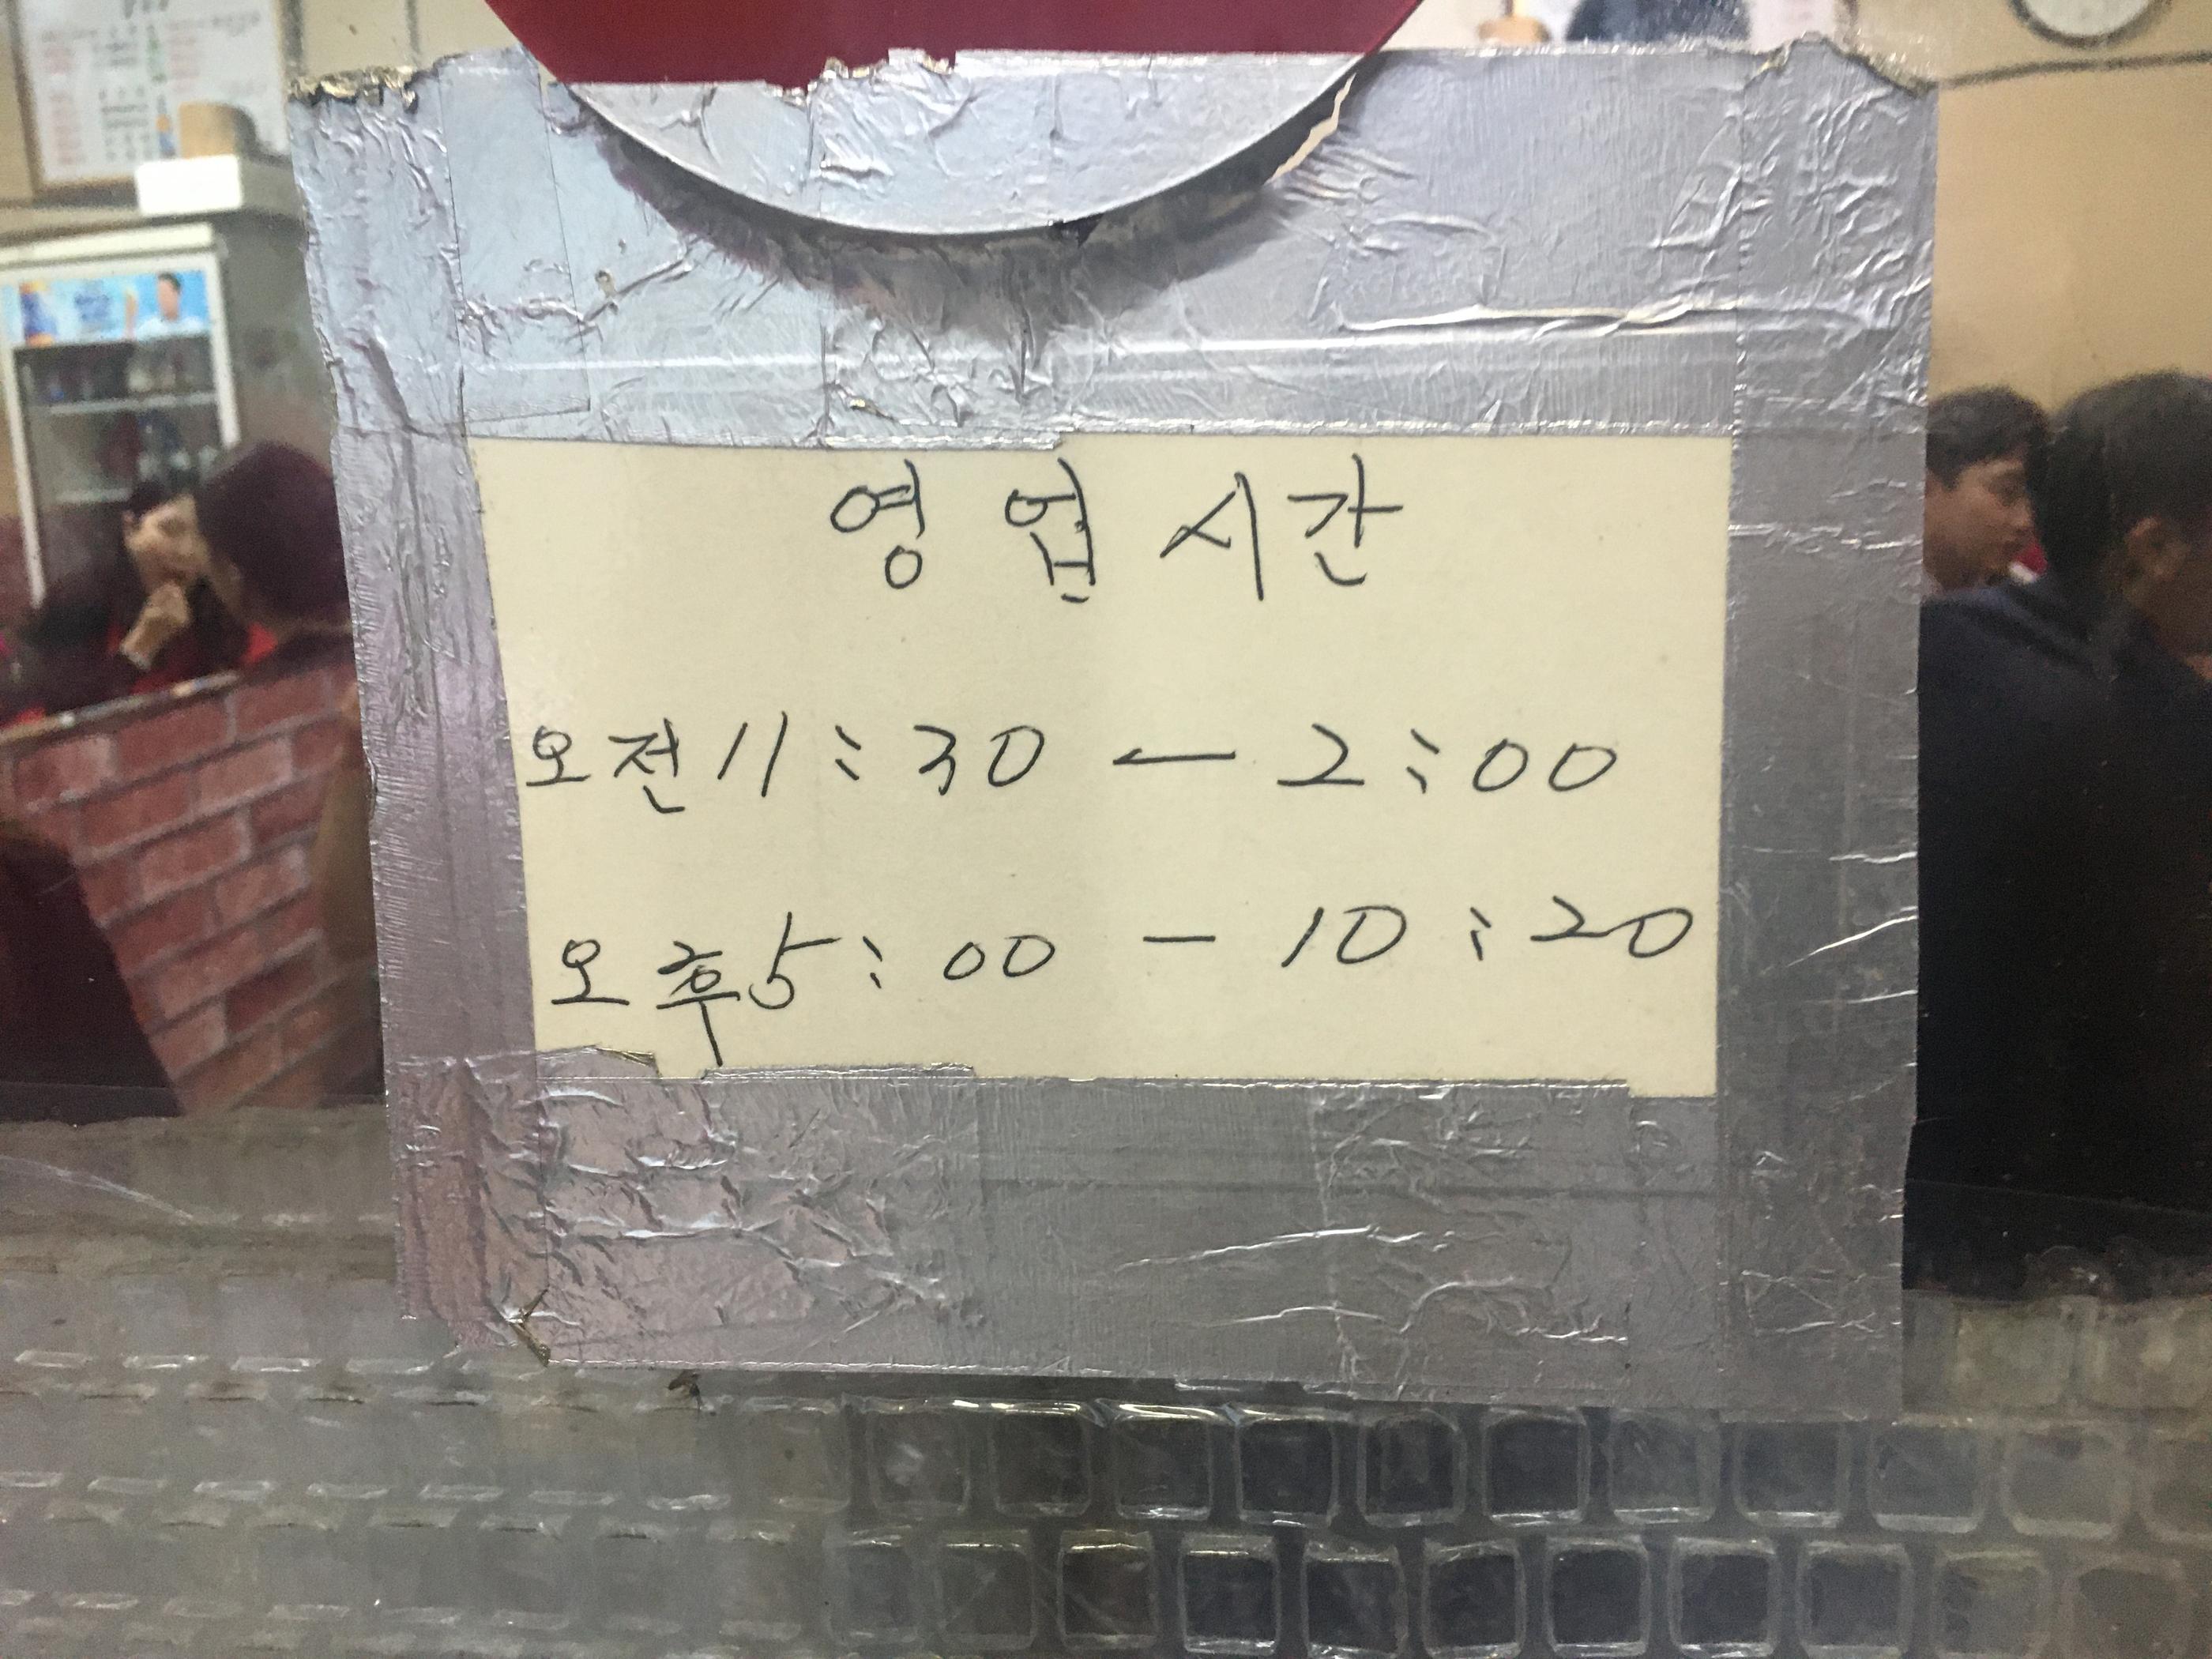 영업시간
오전 11:30 - 2:00
오후 5:00 - 10:20